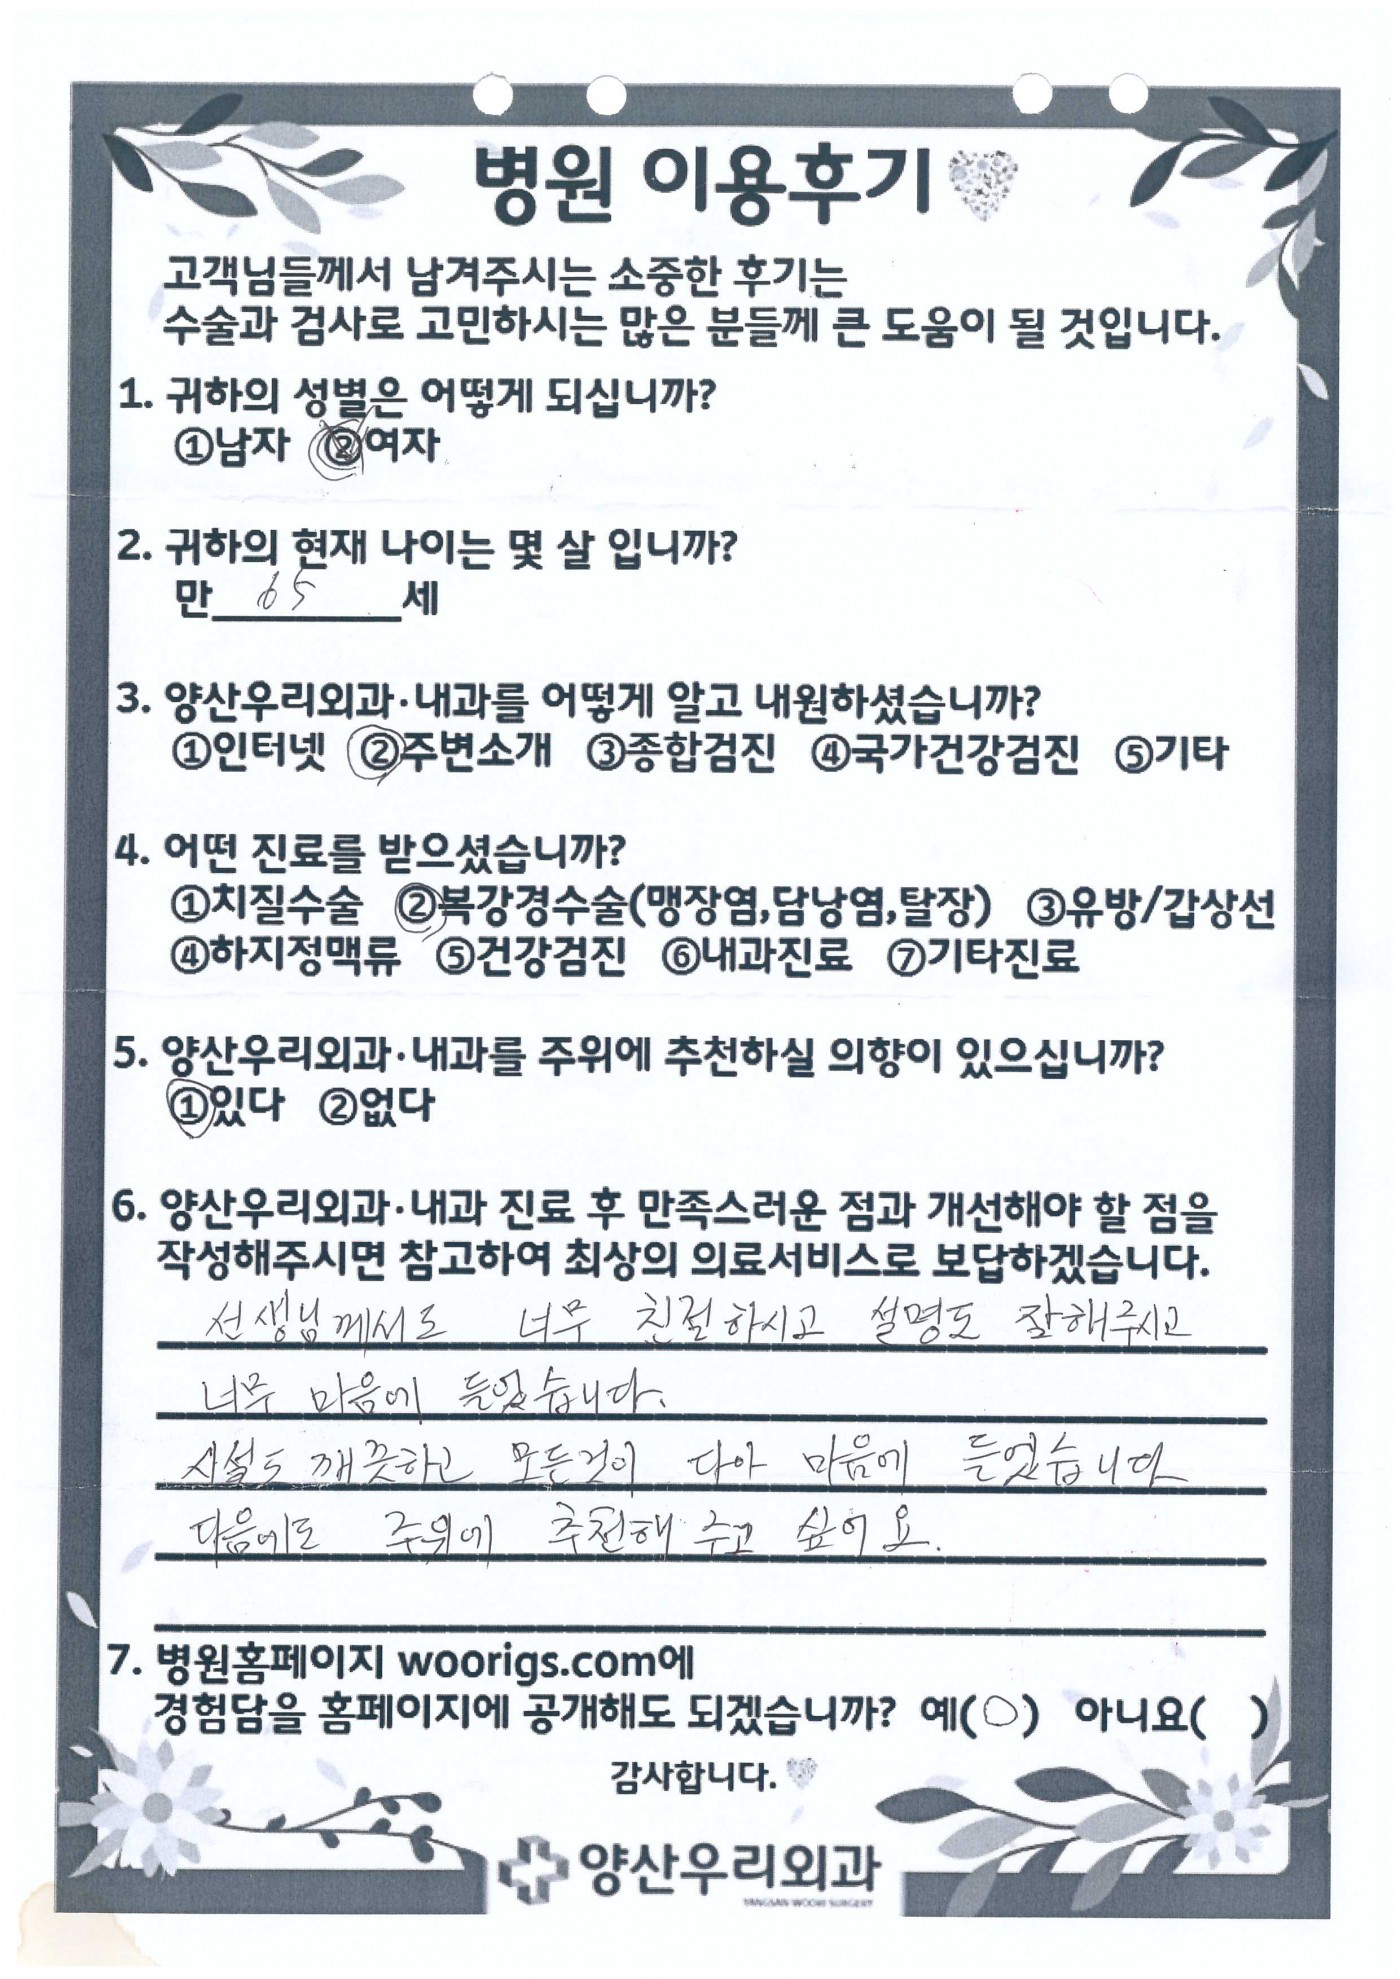 병원 이용후기
고객님들께서 남겨주시는 소중한 후기는
수술과 검사로 고민하시는 많은 분들께 큰 도움이 될 것입니다.
1. 귀하의 성별은 어떻게 되십니까?
①남자 ②여자
2. 귀하의 현재 나이는 몇 살 입니까?
만 65 세
3. 양산우리외과·내과를 어떻게 알고 내원하셨습니까?
①인터넷 ②주변소개 ③종합검진 ④국가건강검진 ⑤기타
4. 어떤 진료를 받으셨습니까?
①치질수술 ②복강경수술(맹장염,담낭염,탈장) ③유방/갑상선
④하지정맥류 ⑤건강검진 ⑥내과진료 ⑦기타진료
5. 양산우리외과·내과를 주위에 추천하실 의향이 있으십니까?
①있다 ②없다
6. 양산우리외과·내과 진료 후 만족스러운 점과 개선해야 할 점을
작성해주시면 참고하여 최상의 의료서비스로 보답하겠습니다.
선생님께서도 너무 친절하시고 설명도 잘해주시고
너무 마음에 들었습니다.
시설도 깨끗하고 모든것이 다아 마음에 들었습니다
다음에도 주위에 추천해 주고 싶어요.
7. 병원홈페이지 woorigs.com에
경험담을 홈페이지에 공개해도 되겠습니까? 예(○) 아니요( )
감사합니다.
양산우리외과
YANGSAN WOORI SURGERY